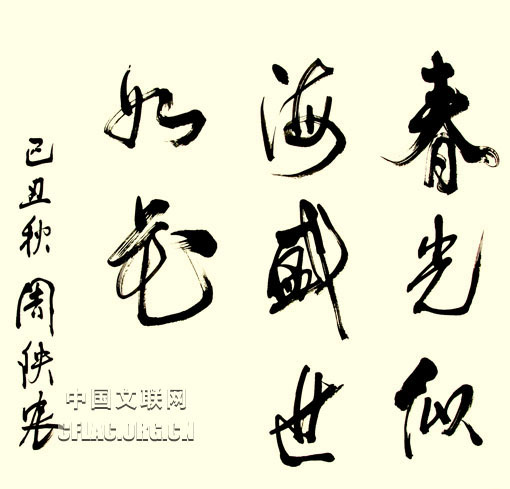 春光似
海盛世
如花
己丑秋周
中国文联网
CFLAC.ORG.CN